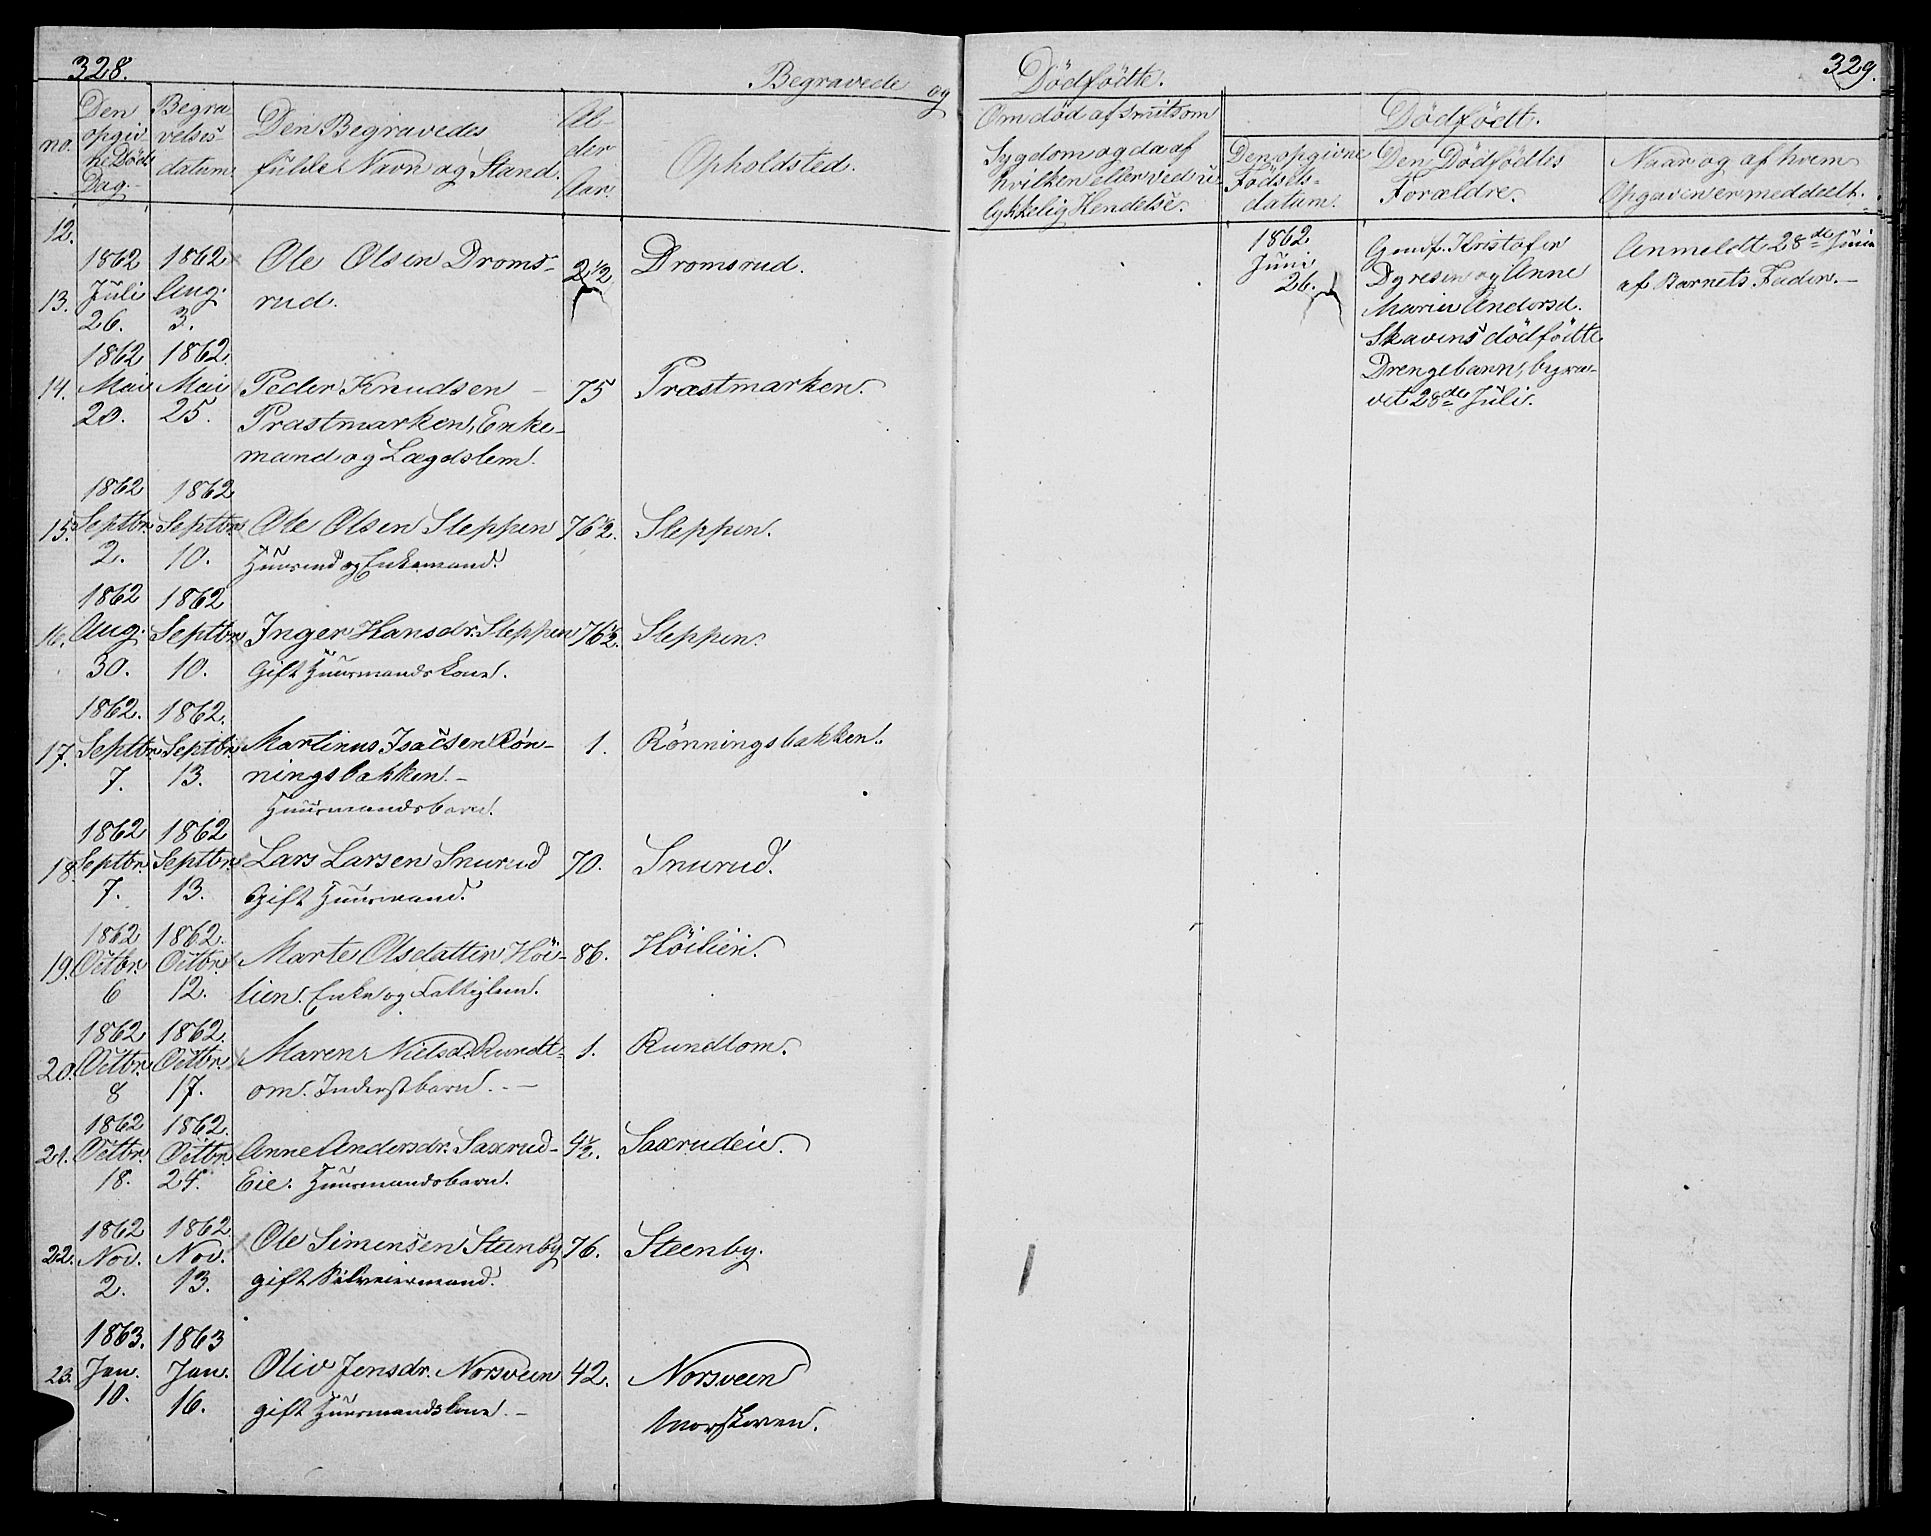 328.
Begravede og
Den opgivne Døds Dag.
no.
Begravelses-datum.
Den Begravedes
fulde Navn og Stand.
Al-
der.
Aar.
Opholdsted.
12.
1862 1862 Ole Olsen Droms- 2 1/2 Dromsrud.
13. Juli Aug. rud.
26. 3.
1862 1862.
14. Mai Mai Peder Knudsen 75 Præstmarken.
20. 25. Præstmarken, Enke-
mand og Lægdslem.
1862 1862
15. Septbr. Septbr. Ole Olsen Steppen 76 1/2. Steppen.
2. 10. Huusmd og Enkemand.
1862 1862
16. Aug. Septbr. Inger Hansdr. Steppen 76 1/2. Steppen.
30. 10. Gift Huusmandskone.
1862. 1862.
17. Septbr. Septbr. Martinus Isacsen Røn- 1. Rönningsbakken.
7. 13. ningsbakken.
Huusmandsbarn.
1862 1862
18. Septbr. Septbr. Lars Larsen Snurud 70. Snurud.
7. 13. Gift Huusmand.
1862 1862.
19. Octbr. Octbr. Marte Olsdatter Höi- 86. Höilien.
6 12. lien. Enke og Fattiglem.
1862 1862.
20. Octbr. Octbr. Maren Nielsd. Rundt- 1. Rundtom.
8 17. om. Inderstbarn.
1862 1862.
21. Octbr. Octbr. Anne Andersdr. Saxrud- 4 1/2. Saxrudeie.
18. 24. Eie. Huusmandsbarn.
1862 1862
22. Nov. Nov. Ole Simensen Steenby 76. Steenby.
2. 13. gift Selveiermand.
1863. 1863
23. Jan. Jan. Oliv Jensdr. Norsveen 42. Norsveen
10. 16. gift Huusmandskone.
329.
Dödfödte.
Om död af smitsom
Sygdom og da af
hvilken eller ved u-
lykkelig Hendelse.
Dödfödt.
Den opgivne
Födsels-
datum.
Den Dödfödtes
Forældre.
Naar og af hvem
Opgaven er meddeelt.
1862
Juni
26.
Gmdf. Kristofer
Dyresen og Anne
Marie Andersd.
Skavens dödfödte
Drengebarn, begra-
vet 28de Juli.
Anmeldt 28de Juni
af Barnets Fader.